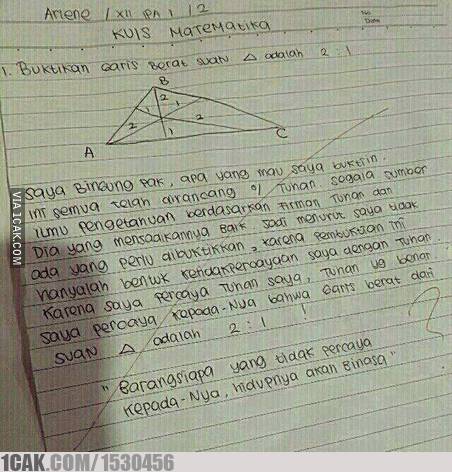 Arlene / XII IPA 1 / 2
No.
Date
KUIS MATEMATIKA
1. Buktikan Garis Berat suatu △ adalah 2 : 1
B
2
1
1
2
2
1
A
C
Saya Bingung Pak, apa yang mau saya buktiin.
Ini semua telah dirancang o/ Tuhan segala sumber
ilmu pengetahuan berdasarkan Firman Tuhan dan
Dia yang mensadikannya Baik. Jadi menurut saya tidak
ada yang perlu dibuktikkan, karena pembuktian ini
hanyalah bentuk ketidakpercayaan saya dengan Tuhan.
Karena saya percaya Tuhan saya, Tuhan yg benar
saya percaya kepada-Nya bahwa Garis berat dari
suatu △ adalah 2 : 1 !
"Barangsiapa yang tidak percaya
kepada-Nya, hidupnya akan Binasa"
?
VIA 1CAK.COM
1CAK.COM/1530456